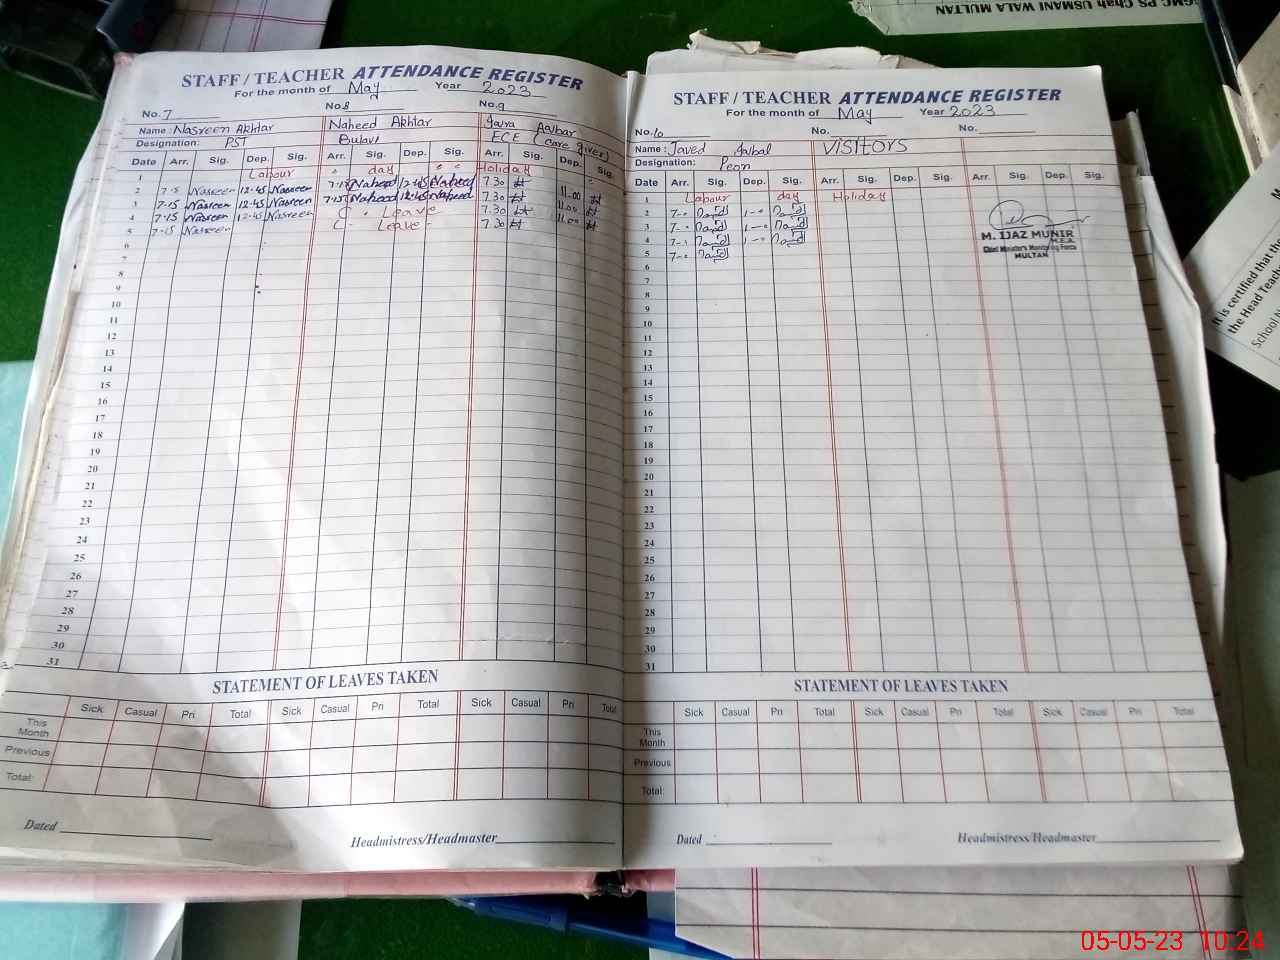 GGMC PS Chah USMANI WALA MULTAN
STAFF / TEACHER ATTENDANCE REGISTER
For the month of May Year 2023
No. 7 No. 8 No. 9
Name: Nasreen Akhtar Naheed Akhtar Akbar
Designation: PST ECE (care giver)
Date Arr. Sig. Dep. Sig. Arr. Sig. Dep. Sig. Arr. Sig. Dep. Sig.
1 Labour day Holiday
2 7.15 Nasreen 12.45 Nasreen 7.15 Naheed 12.45 Naheed 7.30 11.00
3 7.15 Nasreen 12.45 Nasreen 7.15 Naheed 12.45 Naheed 7.30 11.00
4 7.15 Nasreen 12.45 Nasreen C. Leave 7.30 11.00
5 7.15 Nasreen C. Leave 7.30
6
7
8
9
10
11
12
13
14
15
16
17
18
19
20
21
22
23
24
25
26
27
28
29
30
31
STATEMENT OF LEAVES TAKEN
Sick Casual Pri Total Sick Casual Pri Total Sick Casual Pri Total
This Month
Previous
Total:
Dated Headmistress/Headmaster
STAFF / TEACHER ATTENDANCE REGISTER
For the month of May Year 2023
No. 10 No. No.
Name: Javed Iqbal VISITORS
Designation: Peon
Date Arr. Sig. Dep. Sig. Arr. Sig. Dep. Sig. Arr. Sig. Dep. Sig.
1 Labour day Holiday
2 7-0 1-0
3 7-0 1-0
4 7-0 1-0
5 7-0
6
7
8
9
10
11
12
13
14
15
16
17
18
19
20
21
22
23
24
25
26
27
28
29
30
31
M. IJAZ MUNIR
M.E.A.
Chief Minister's Monitoring Force
MULTAN
STATEMENT OF LEAVES TAKEN
Sick Casual Pri Total Sick Casual Pri Total Sick Casual Pri Total
This Month
Previous
Total:
Dated Headmistress/Headmaster
It is certified that the
the Head Teach
School N
05-05-23 10:24